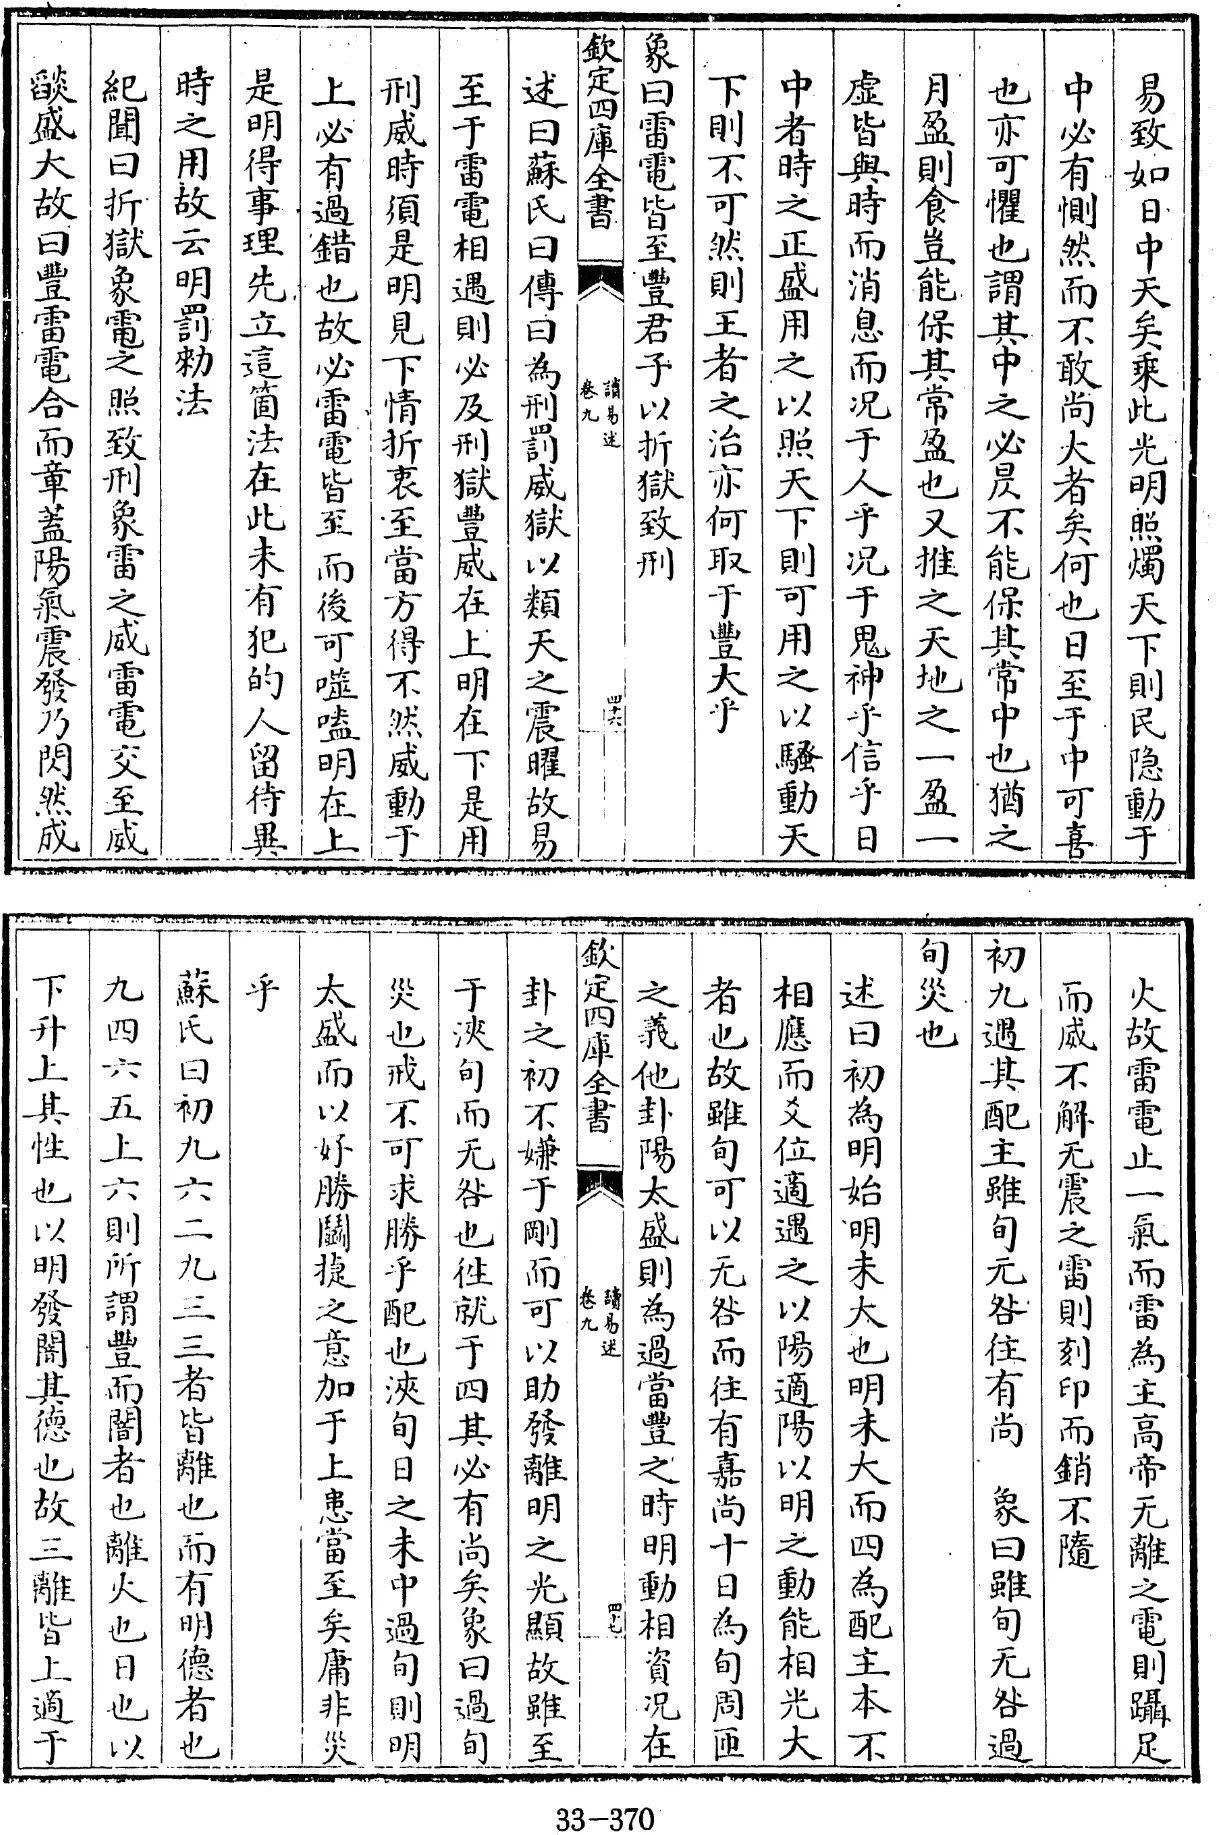 易致如日中天矣乘此光明照燭天下則民隐動于
中必有惻然而不敢尚大者矣何也日至于中可喜
也亦可懼也謂其中之必昃不能保其常中也猶之
月盈則食豈能保其常盈也又推之天地之一盈一
虚皆與時而消息而况于人乎况于鬼神乎信乎日
中者時之正盛用之以照天下則可用之以騷動天
下則不可然則王者之治亦何取于豐大乎
象曰雷電皆至豐君子以折獄致刑
欽定四庫全書
讀易述
卷九
四十六
述曰蘇氏曰傳曰為刑罰威獄以類天之震曜故易
至于雷電相遇則必及刑獄豐威在上明在下是用
刑威時須是明見下情折衷至當方得不然威動于
上必有過錯也故必雷電皆至而後可噬嗑明在上
是明得事理先立這箇法在此未有犯的人留待異
時之用故云明罰勅法
紀聞曰折獄象電之照致刑象雷之威雷電交至威
燄盛大故曰豐雷電合而章蓋陽氣震發乃閃然成
火故雷電止一氣而雷為主高帝无離之電則躡足
而威不解无震之雷則刻印而銷不隨
初九遇其配主雖旬无咎往有尚　象曰雖旬无咎過
旬災也
述曰初為明始明未大也明未大而四為配主本不
相應而爻位適遇之以陽適陽以明之動能相光大
者也故雖旬可以无咎而往有嘉尚十日為旬周匝
之義他卦陽太盛則為過當豐之時明動相資况在
欽定四庫全書
讀易述
卷九
四十七
卦之初不嫌于剛而可以助發離明之光顯故雖至
于浹旬而无咎也徃就于四其必有尚矣象曰過旬
災也戒不可求勝乎配也浹旬日之未中過旬則明
太盛而以好勝鬭㨗之意加于上患當至矣庸非災
乎
蘇氏曰初九六二九三三者皆離也而有明德者也
九四六五上六則所謂豐而闇者也離火也日也以
下升上其性也以明發闇其德也故三離皆上適于
33-370